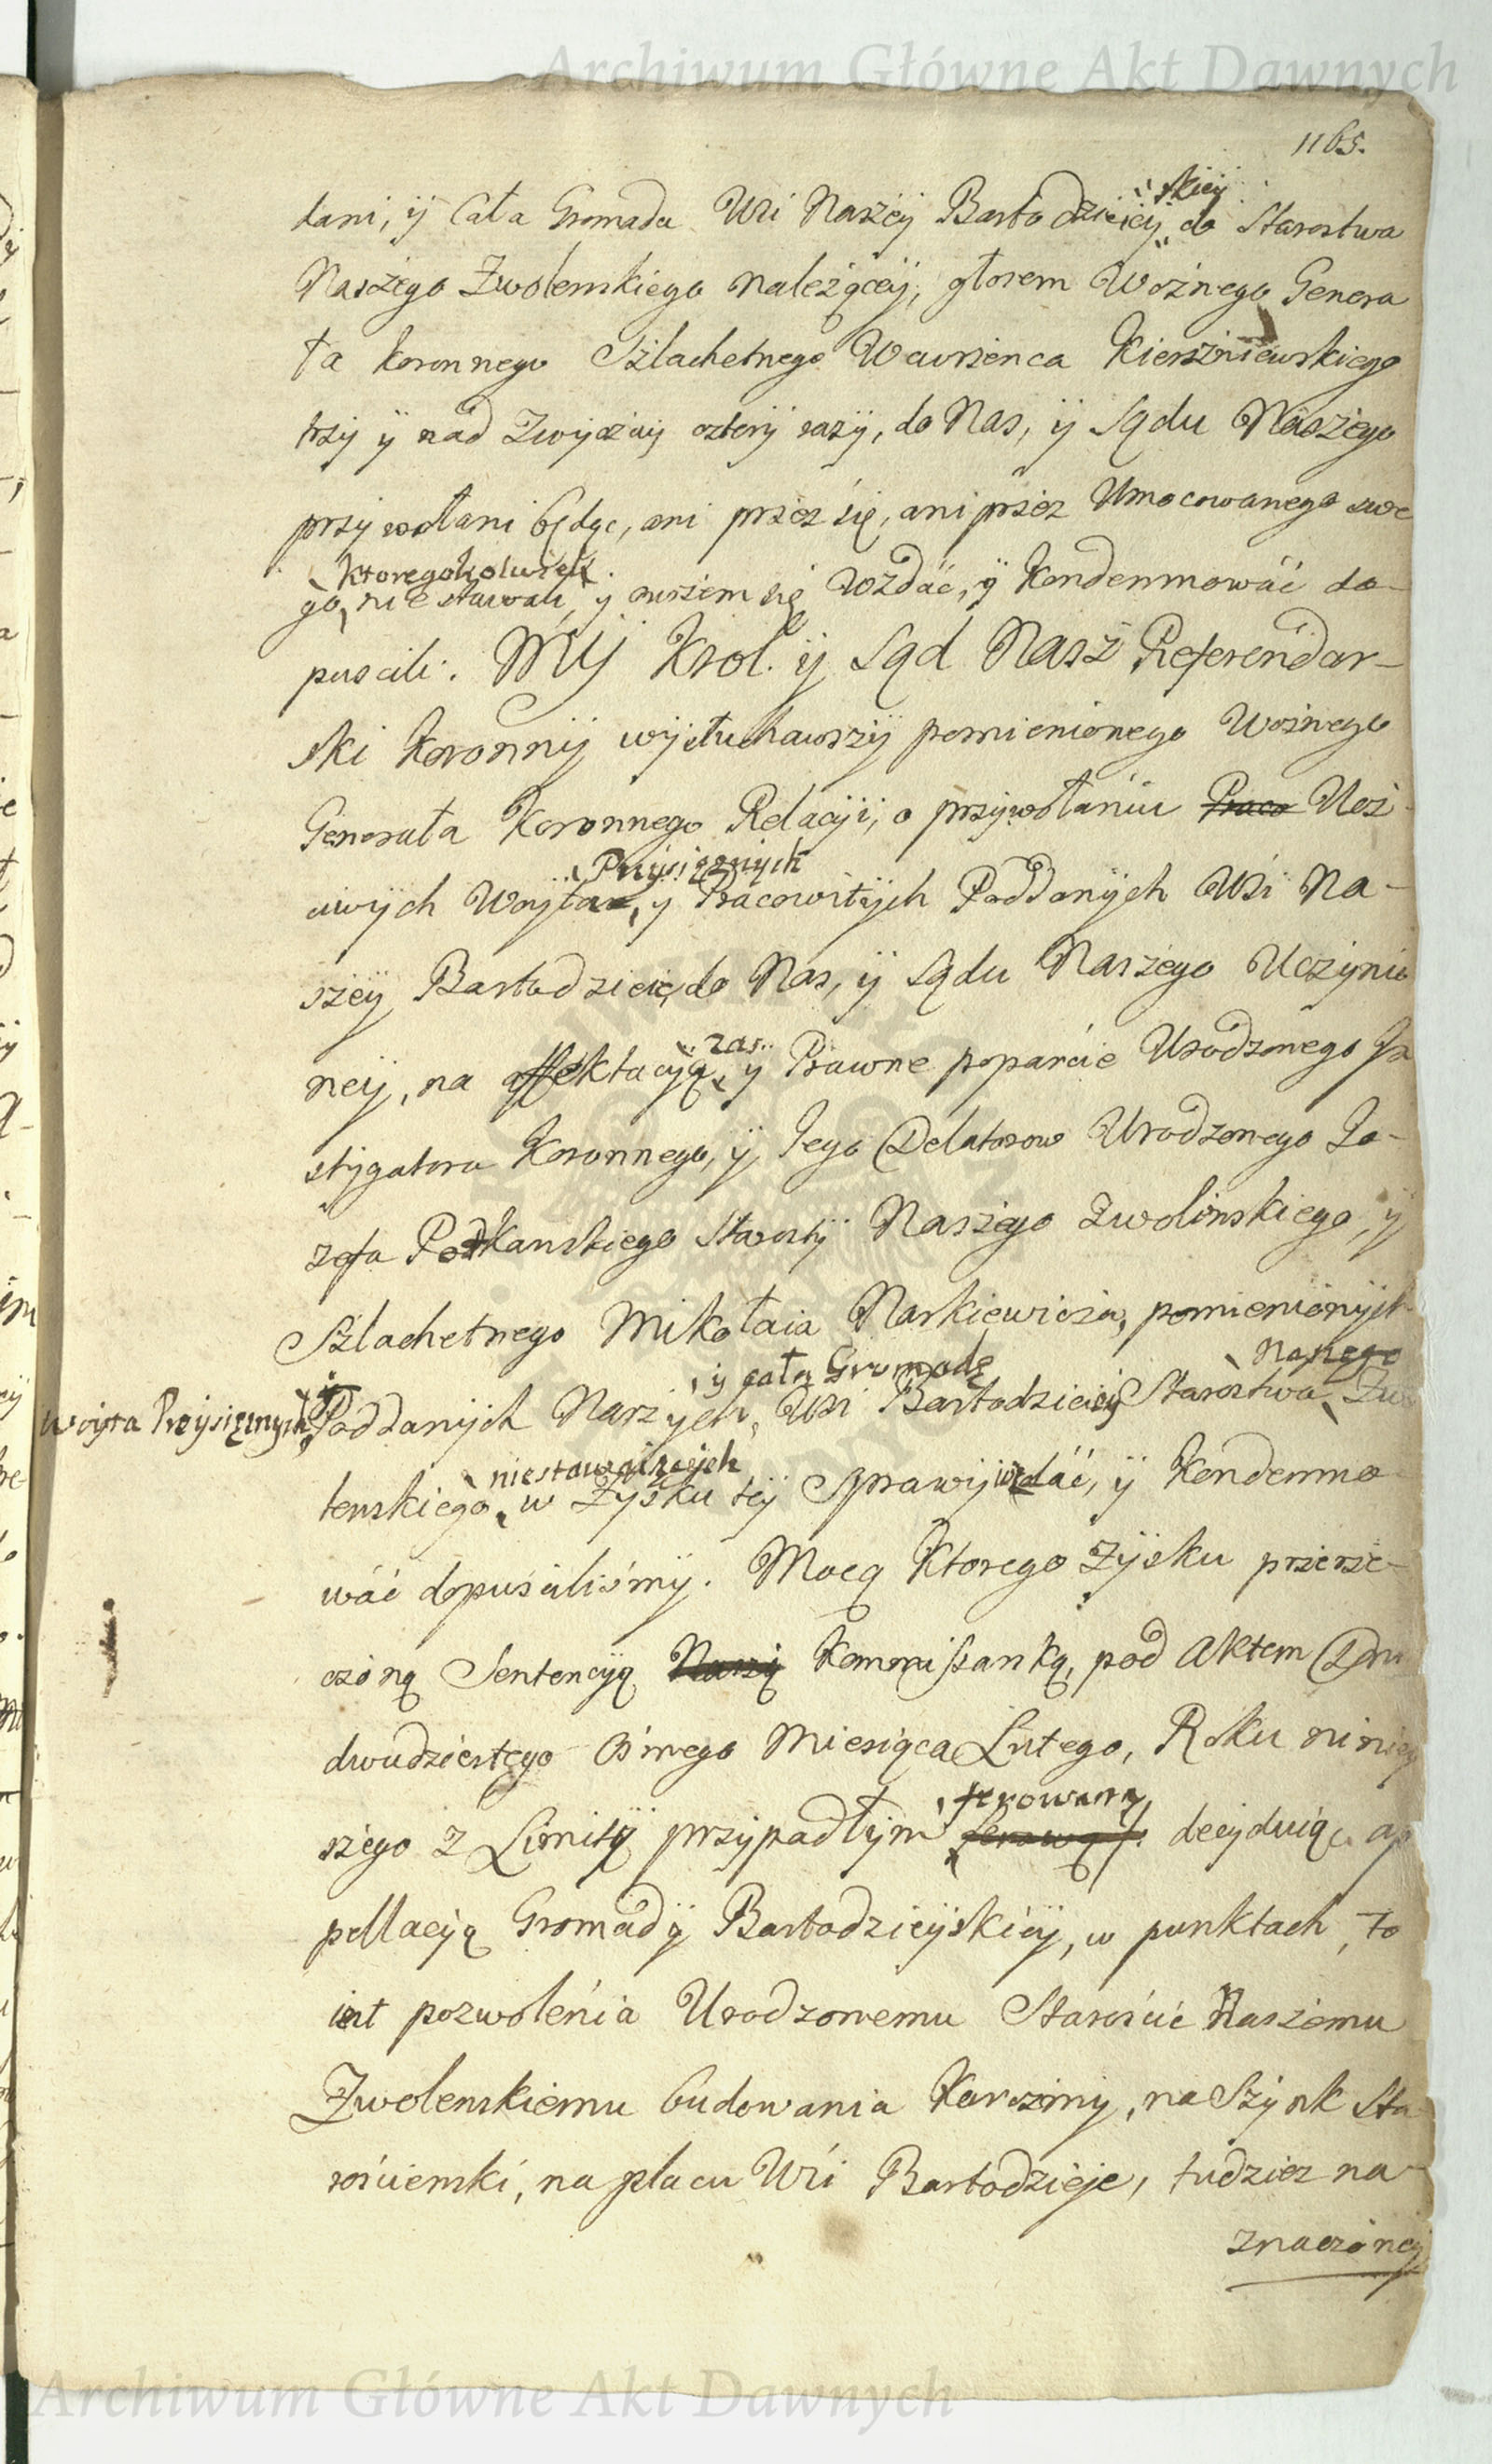 Archiwum Główne Akt Dawnych
1165.
dani, ÿ Cała Gromada Wsi Naszey Bartodzieiey skiey do Starostwa
Naszego Zwolenskiego należącey, głosem Woźnego Genera
ła koronnego Szlachetnego Wawrzenca Kierszniewskiego
trzy ÿ nad Zwyczay cztery razy, do Nas, ÿ Sądu Naszego
przywołani będąc, ani przez się, ani przez Umocowanego swe
ktoregokolwiek
go, nie stawali, y owszem się Wzdać, ÿ Kondemnować do-
puscili. MY Krol. ÿ Sąd Nasz Referendar-
ski Koronny wysłuchawszy pomienionego Woźnego
Generała Koronnego Relacyi, o przywołaniu Praco Ucz-
Przysięznych
ciwych Woyta, y Pracowitych Poddanych Wsi Na-
szey Bartodzieie, do Nas, ÿ Sądu Naszego Uczynio
zas
ney, na affektacyą, y Prawne poparcie Urodzonego In
stygatora Koronnego, ÿ Jego Delatorow Urodzonego Jo-
zefa Podkanskiego Starosty Naszego Zwolinskiego, ÿ
Szlachetnego Mikołaia Markiewicza, pomienionych
y całą Gromadę Naszego
Woyta Przysięznych, y Poddanych Naszych, Wsi Bartodzieiey Starostwa, Zwo
niestawaiących
lenskiego, w Zysku tey Sprawy wzdać, ÿ Kondemno-
wać dopuscilismy. Mocą Ktorego Zysku przerze-
czoną Sentencyą Naszą Kommissarską, pod Aktem Dnia
dwudziestego Osmego Miesiąca Lutego, Roku niniey
ferowaną
szego z Limity przypadłym decyduiąc ap
pellacyą Gromady Bartodzieyskiey, w punktach, to
iest pozwolenia Urodzonemu Staroście Naszemu
Zwolenskiemu budowania Karczmy, na Szynk Sta-
rościenski, na placu Wsi Bartodzieje, tudziez na-
znaczoney
Archiwum Główne Akt Dawnych